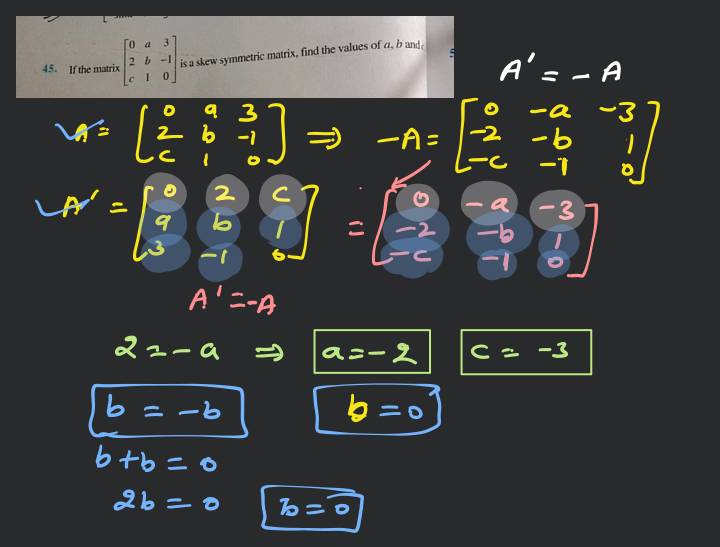 45. If the matrix [0 a 3
2 b -1
c 1 0] is a skew symmetric matrix, find the values of a, b and
A' = - A
A = [0 a 3
2 b -1
c 1 0] ⇒ -A = [0 -a -3
-2 -b 1
-c -1 0]
A' = [0 2 c
a b 1
3 -1 0] = [0 -a -3
-2 -b 1
-c -1 0]
A' = -A
2 = -a ⇒ a = -2 c = -3
b = -b b = 0
b + b = 0
2b = 0 b = 0